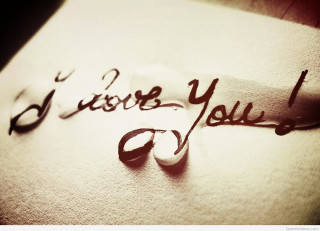 I love You!